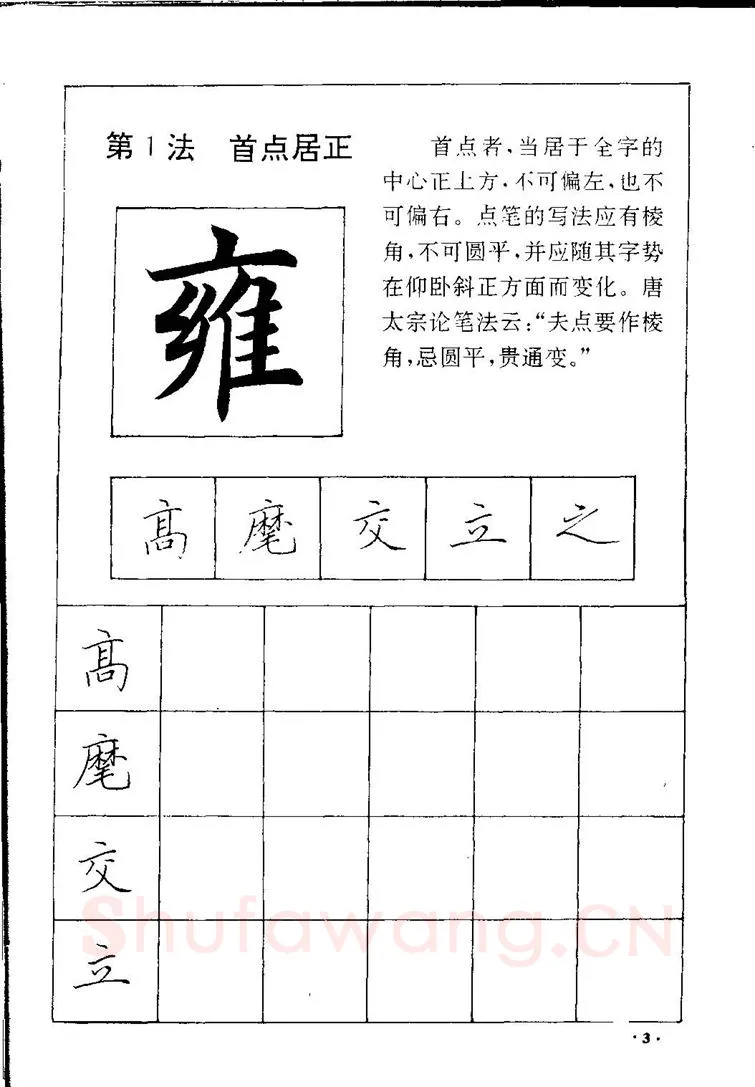 第1法 首点居正
首点者,当居于全字的
中心正上方,不可偏左,也不
可偏右。点笔的写法应有棱
角,不可圆平,并应随其字势
在仰卧斜正方面而变化。唐
太宗论笔法云:“夫点要作棱
角,忌圆平,贵通变。”
雍
髙 麾 交 立 之
髙
麾
交
立
Shufawang.CN
·3·